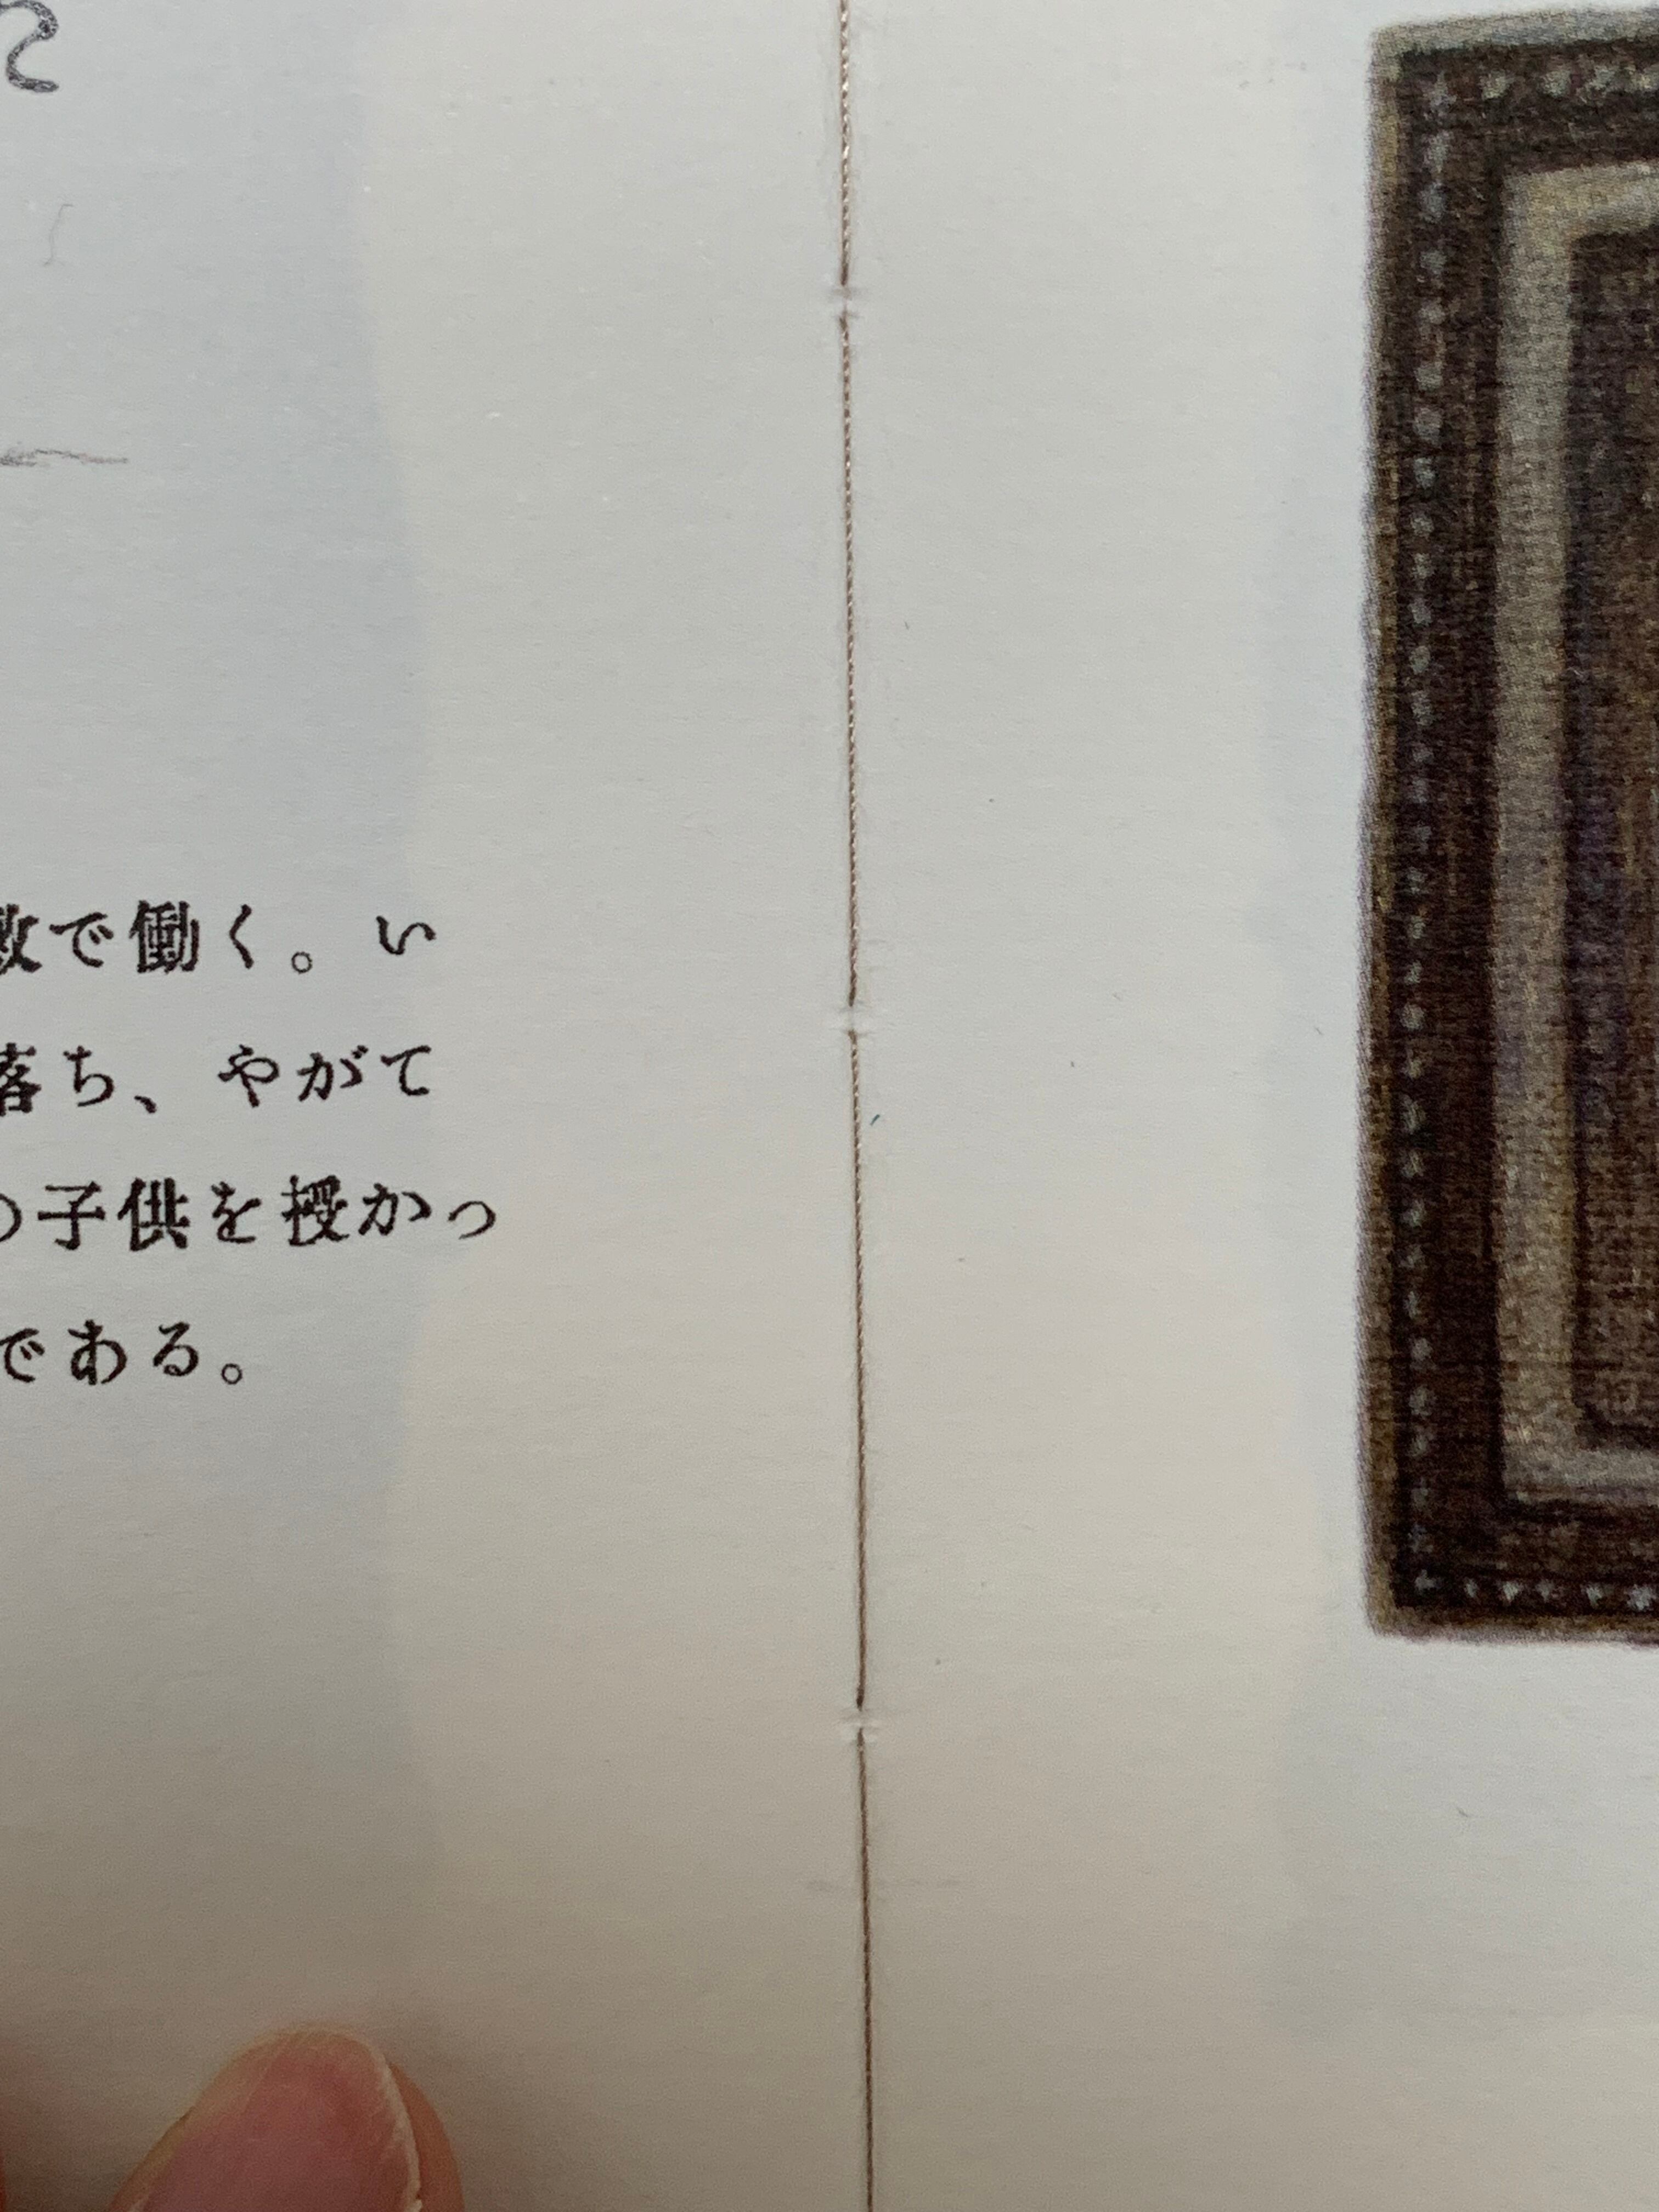 で働く。い
落ち、やがて
子供を授かっ
である。